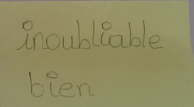 inoubliable
bien